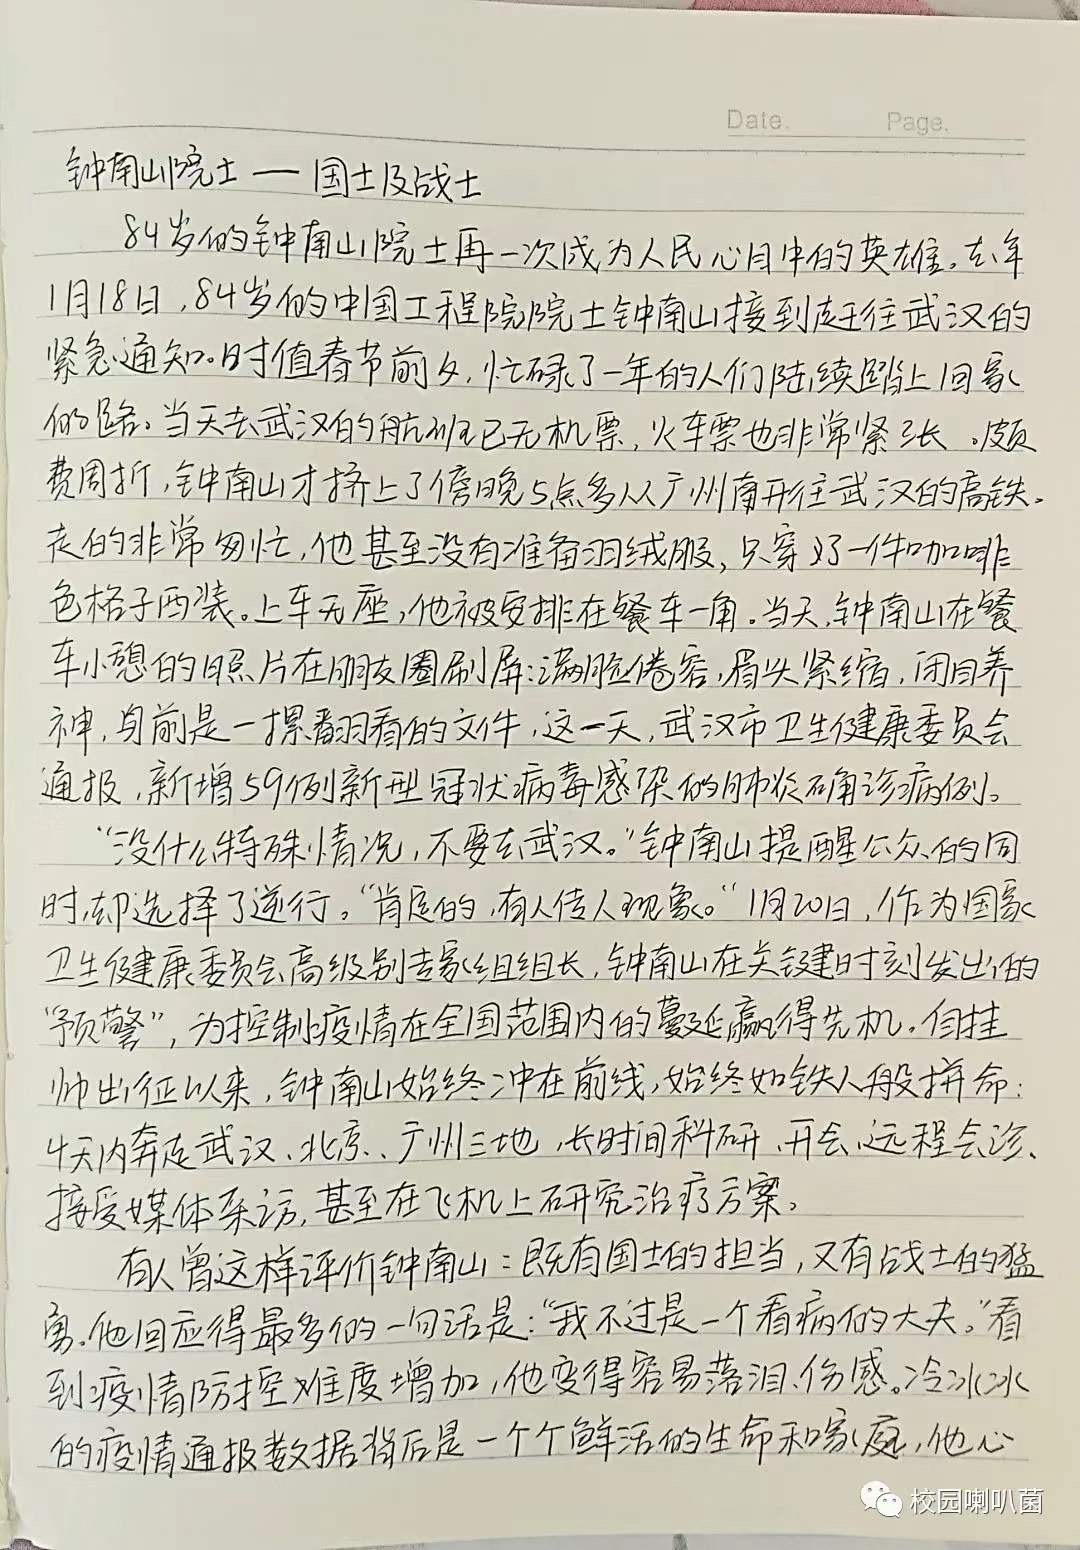 Date.
Page.
钟南山院士 — 国士及战士
84岁的钟南山院士再一次成为人民心目中的英雄。去年
1月18日,84岁的中国工程院院士钟南山接到赶往武汉的
紧急通知。时值春节前夕,忙碌了一年的人们陆续踏上回家
的路。当天去武汉的航班已无机票,火车票也非常紧张。颇
费周折,钟南山才挤上了傍晚5点多从广州南开往武汉的高铁。
走的非常匆忙,他甚至没有准备羽绒服,只穿了一件咖啡
色格子西装。上车无座,他被安排在餐车一角。当天,钟南山在餐
车小憩的照片在朋友圈刷屏:满脸倦容,眉头紧缩,闭目养
神,身前是一摞翻看的文件,这一天,武汉市卫生健康委员会
通报,新增59例新型冠状病毒感染的肺炎确诊病例。
“没什么特殊情况,不要去武汉。”钟南山提醒公众的同
时,却选择了逆行。“肯定的,有人传人现象。“1月20日,作为国家
卫生健康委员会高级别专家组组长,钟南山在关键时刻发出的
“预警”,为控制疫情在全国范围内的蔓延赢得先机。自挂
帅出征以来,钟南山始终冲在前线,始终如铁人般拼命:
4天内奔走武汉、北京、广州三地,长时间科研、开会、远程会诊、
接受媒体采访,甚至在飞机上研究治疗方案。
有人曾这样评价钟南山:既有国士的担当,又有战士的猛
勇。他回应得最多的一句话是:“我不过是一个看病的大夫。”看
到疫情防控难度增加,他变得容易落泪、伤感。冷冰冰
的疫情通报数据背后是一个个鲜活的生命和家庭,他心
校园喇叭菌